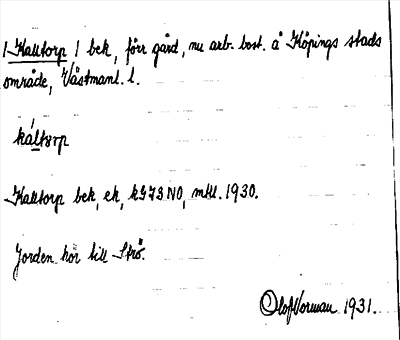 1 Kalltorp / bek, förr gård, nu arb. bost. å Köpings stads
område, Västmanl. l.
káltorp
Kalltorp bek, ek, k973 NO, mtll. 1930.
Jorden hör till Strö.
Olof Norman 1931.